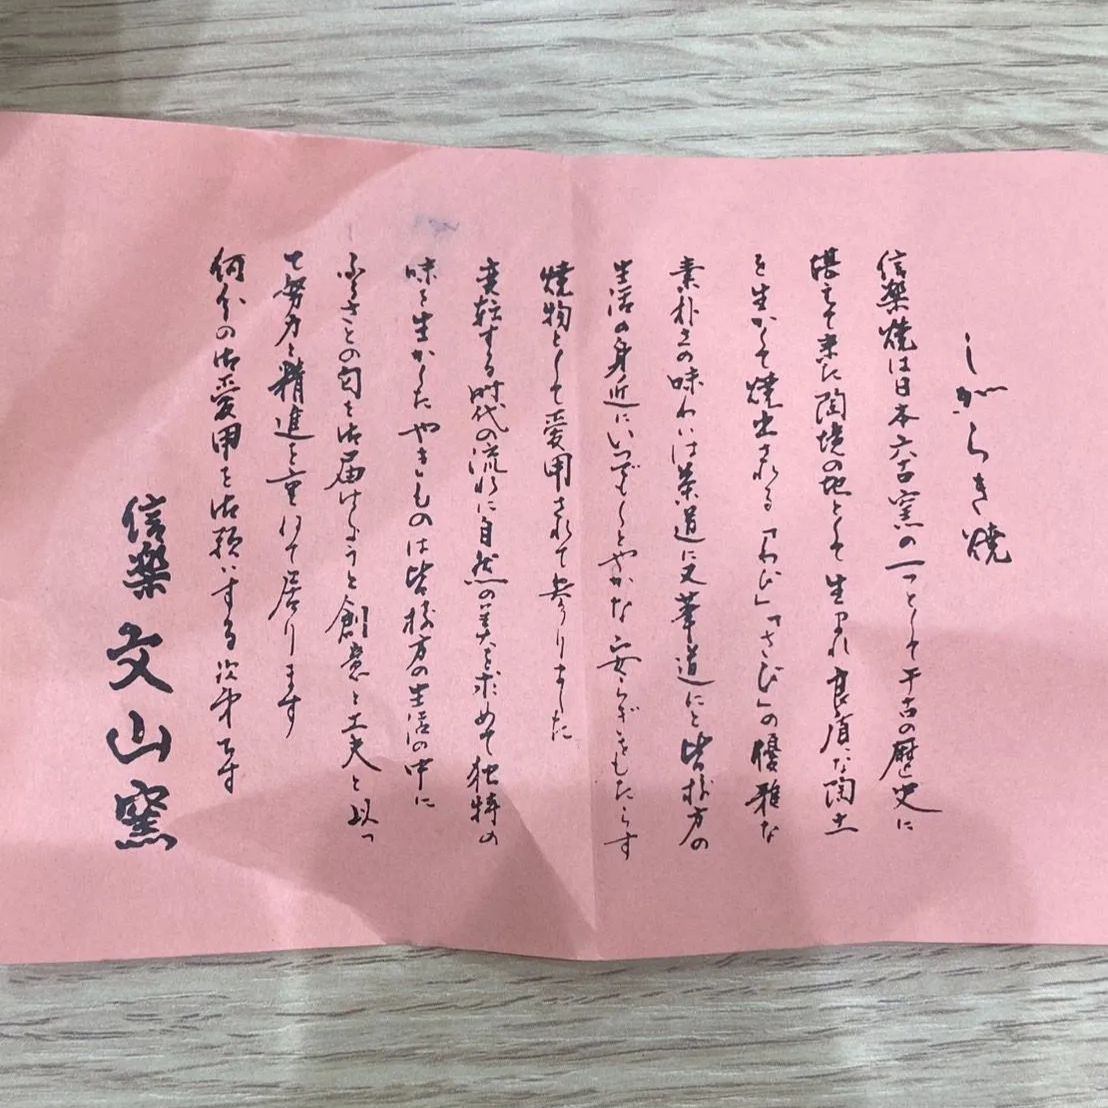 しがらき焼
信楽焼は日本六古窯の一つとして千古の歴史に
堪えて来た陶境の地として生まれ良質な陶土
を生かして焼出される「わび」「さび」の優雅な
素朴さの味わいは茶道に又華道にと皆様方の
生活の身近にいつでもしとやかな安らぎをもたらす
焼物として愛用されて参りました
変転する時代の流れに自然の美を求めて独特の
味を生かしたやきものは皆様方の生活の中に
ふるさとの匂を御届けしようと創意と工夫と以っ
て努力と精進を重ねて居ります
何分の御愛用を御願いする次第です
信楽 文山窯